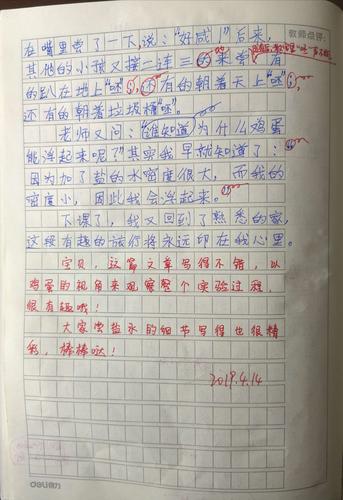 教师点评:
在嘴里尝了一下,说:“好咸!”后来,
其他的小孩又接二连三的来尝,有
的趴在地上“呸”,还有的朝着天上“呸”,
还有的朝着垃圾桶“呸”。
老师又问:“谁知道为什么鸡蛋
能浮起来呢?”其实我早就知道了:
因为加了盐的水密度很大,而我的
密度小,因此我会浮起来。
下课了,我又回到了熟悉的家,
这段有趣的旅行将永远印在我心里。
宝贝,这篇文章写得不错,以
鸡蛋的视角来观察整个实验过程,
很有趣哦!
大家尝盐水的细节写得也很精
彩,棒棒哒!
2019.4.14
deli得力